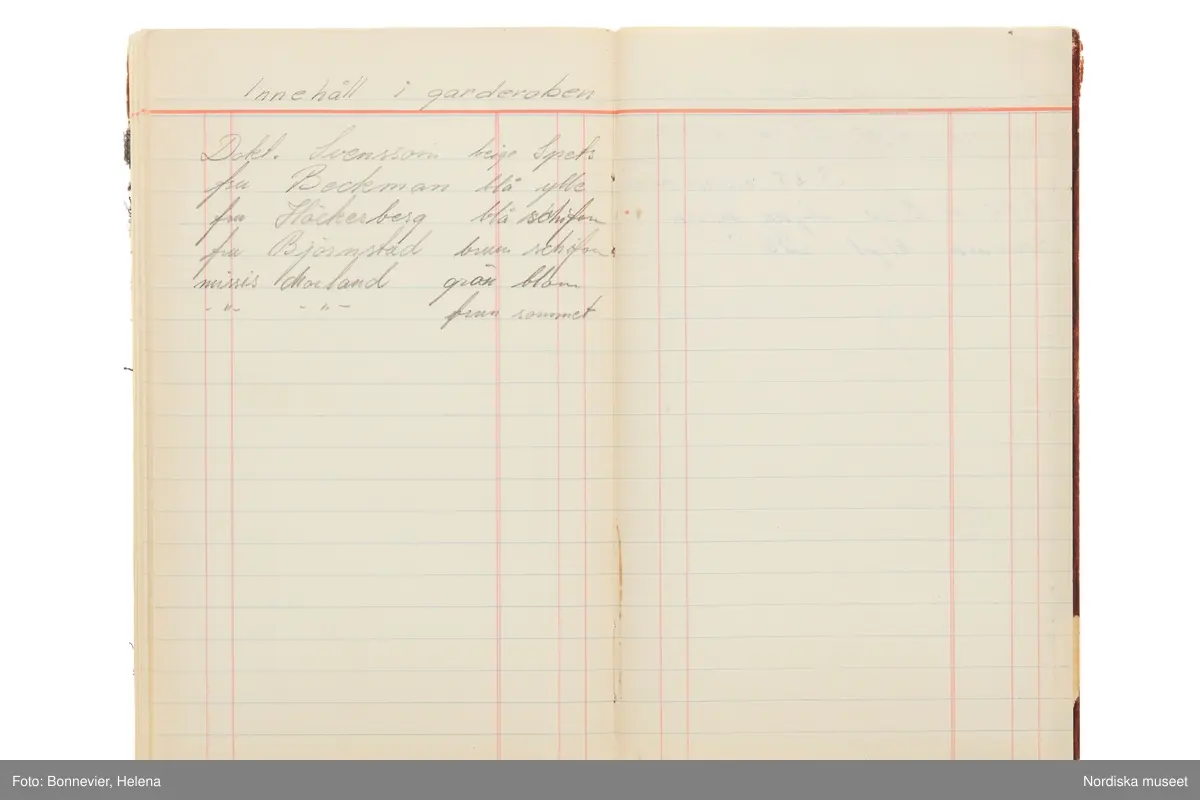 Innehåll i garderoben
Dokt. Svensson beige Spets
fru Beckman blå ylle
fru Höckerberg blå schifon
fru Björnstad brun schifon
missis Morland grön blom
-"- -"- brun sammet
Foto: Bonnevier, Helena
Nordiska museet